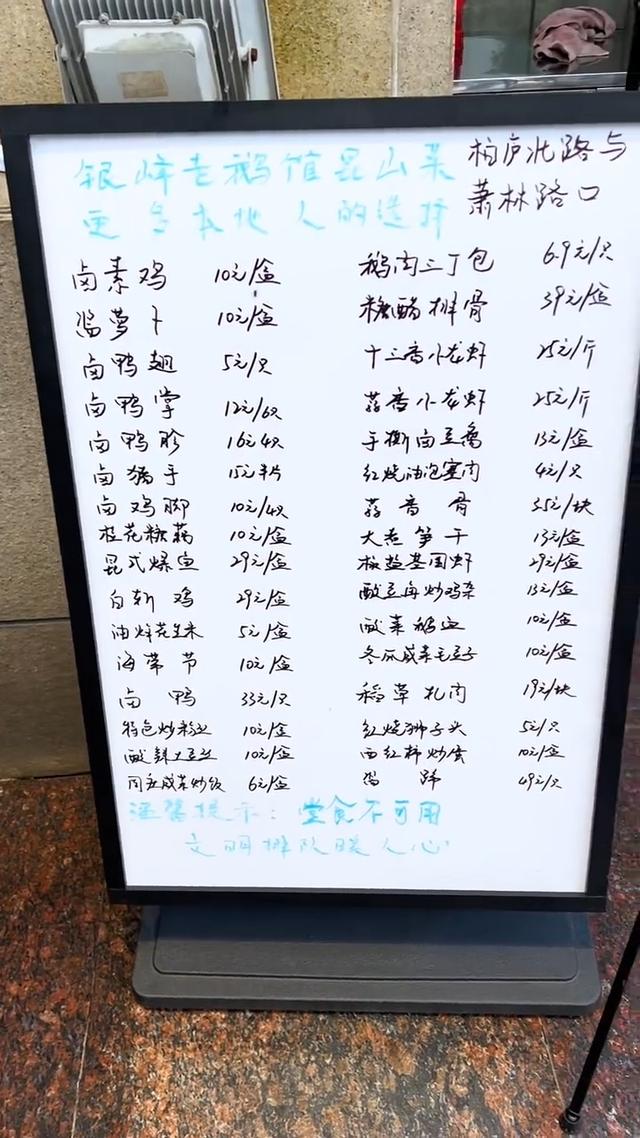 银峰老鹅馆昆山菜
更多本地人的选择
柏庐北路与
萧林路口
卤素鸡 10元/盒
酱萝卜 10元/盒
卤鸭翅 5元/只
卤鸭掌 12元/6只
卤鸭胗 16元4只
卤猪手 15元半片
卤鸡脚 10元/4只
桂花糖藕 10元/盒
昆式爆鱼 29元/盒
白斩鸡 29元/盒
油炸花生米 5元/盒
海带节 10元/盒
卤鸭 33元/只
特色炒米边 10元/盒
酸辣土豆丝 10元/盒
周庄咸菜炒饭 6元/盒
鹅肉三丁包 6.9元/只
糖醋排骨 39元/盒
十三香小龙虾 25元/斤
蒜香小龙虾 25元/斤
手撕卤豆腐 13元/盒
红烧油泡塞肉 4元/只
蒜香骨 35元/块
大煮笋干 13元/盒
椒盐基围虾 29元/盒
酸豆角炒鸡杂 13元/盒
酸菜鹅血 10元/盒
冬瓜咸菜毛豆子 10元/盒
稻草扎肉 19元/块
红烧狮子头 5元/只
西红柿炒蛋 10元/盒
49元/只
温馨提示：堂食不可用
文明排队暖人心